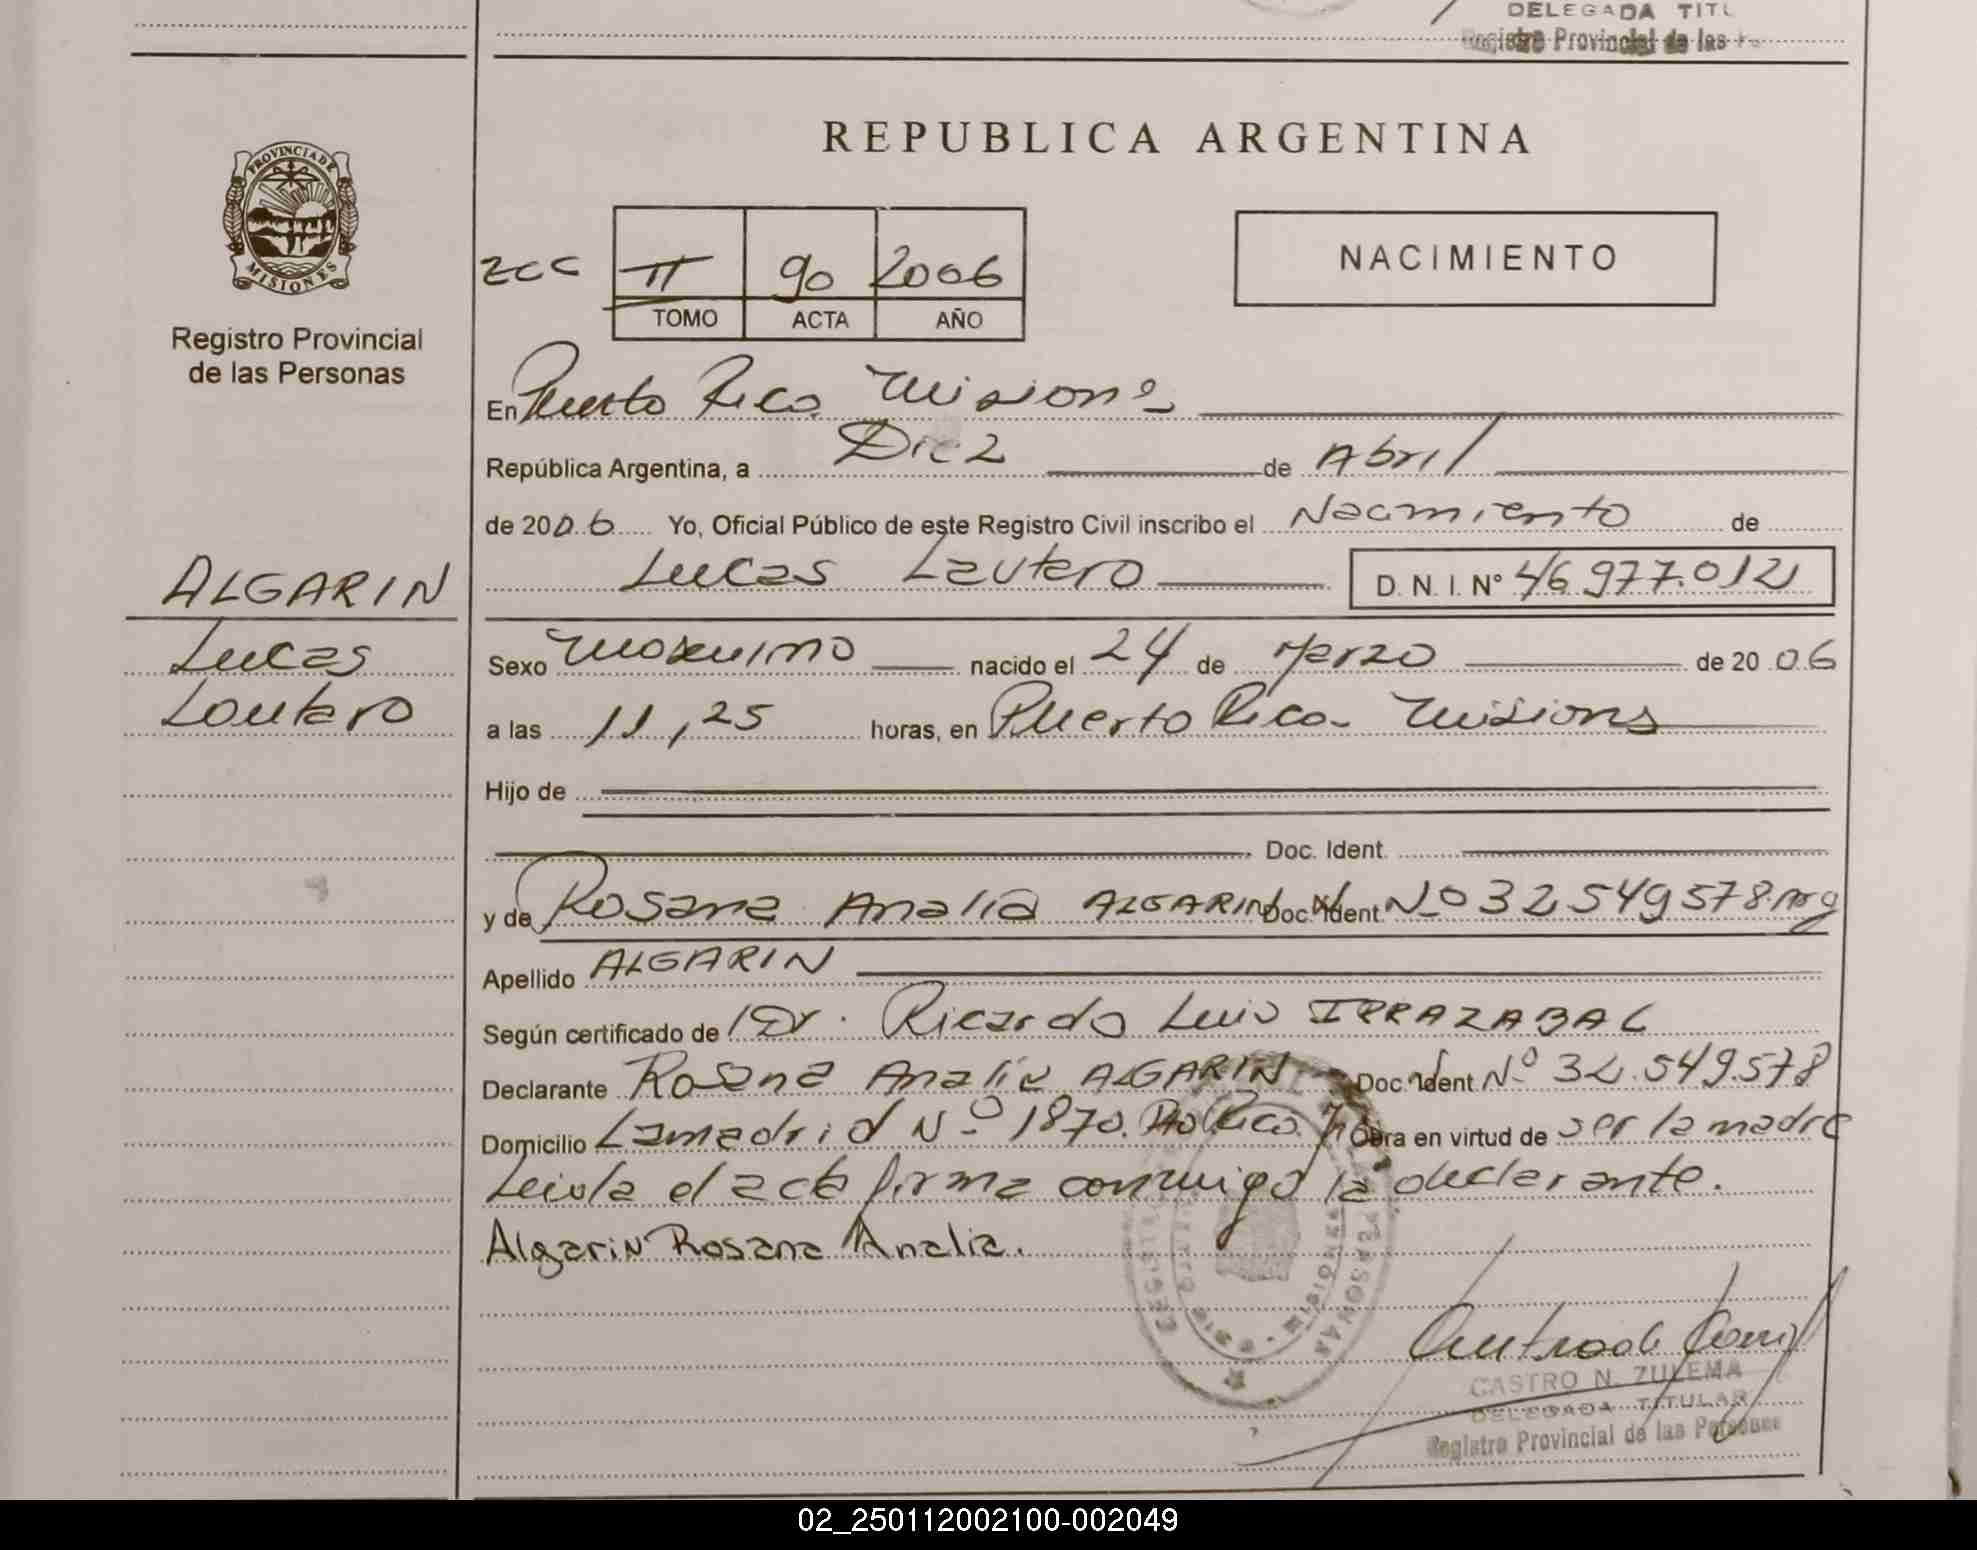 DELEGADA TITU
Registro Provincial de las P
REPUBLICA ARGENTINA
PROVINCIA DE MISIONES
Registro Provincial
de las Personas
2cc II 90 2006
TOMO ACTA AÑO
NACIMIENTO
En Puerto Rico Misiones
República Argentina, a Diez de Abril
de 2006 Yo, Oficial Público de este Registro Civil inscribo el Nacimiento de
Lucas Lautaro D. N. I. N° 46.977.012
ALGARIN
Lucas
Lautaro
Sexo Masculino nacido el 24 de Marzo de 2006
a las 11,25 horas, en Puerto Rico - Misiones
Hijo de
Doc. Ident.
y de Rosana Analia ALGARIN Doc. Ident. Nº 32.549.578.Arg
Apellido ALGARIN
Según certificado de Dr. Ricardo Luis IRRAZABAL
Declarante Rosana Analia ALGARIN Doc. Ident Nº 32.549.578
Domicilio Lamadrid Nº 1870. Pto Rico. Obra en virtud de ser la madre
Leida el acta firma conmigo la declarante.
Algarin Rosana Analia.
CASTRO N. ZULEMA
DELEGADA TITULAR
Registro Provincial de las Personas
02_250112002100-002049